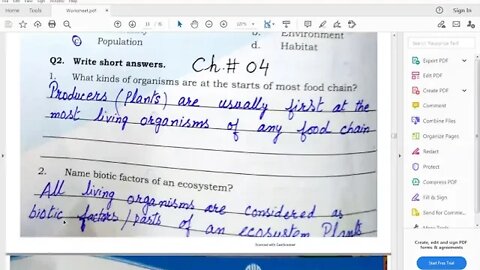 Worksheet.pdf
Sign In
Population
b. Environment
d. Habitat
Q2. Write short answers. Ch # 04
1. What kinds of organisms are at the starts of most food chain?
Producers (plants) are usually first at the
most living organisms of any food chain
2. Name biotic factors of an ecosystem?
All living organisms are considered as
biotic factors/parts of an ecosystem Plants
Scanned with CamScanner
Export PDF
Edit PDF
Create PDF
Comment
Combine Files
Organize Pages
Redact
Protect
Compress PDF
Fill & Sign
Send for Comme...
Create, edit and sign PDF
forms & agreements
Start Free Trial